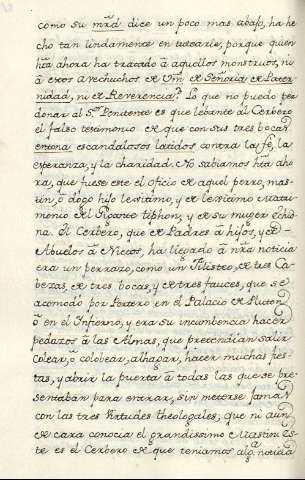 como su mrd dice un poco mas abajo, ha he
cho tan lindamente en tutearle, porque quien
hta ahora ha tratado à aquellos monstruos, ni
à estos Avechuchos de Vm. de Señoria, de Pater-
nidad, ni de Reverencia? Lo que no puedo per
donar al Sor Penitente es que lebante al Cerbero
el falso testimonio de que con sus tres bocas
entona escandalosos latidos contra la fe, la
esperanza, y la charidad. No sabiamos hta aho
ra, que fuese este el oficio de aquel perro, mas-
tin, ò dogo hijo lexitimo, y de lexitimo Matri-
monio del Gigante tiphon, y de su muger echid-
na. El Cerbero, que de Padres à hijos, y de
Abuelos à Nietos, ha llegado à nra noticia
era un perrazo, como un Filisteo, de tres Ca-
bezas, de tres bocas, y de tres fauces, que se
acomodò por Portero en el Palacio de Pluton
ò en el Infierno, y era su incumbencia hacer
pedazos à las Almas, que pretendian salir
Colear, ò colobear, alhagar, hacer muchas fies-
tas, y abrir la puerta à todas las que se pre-
sentaban para entrar, sin meterse jamas
con las tres Virtudes theologales; que ni aun
de cara conocia el grandissimo Mastin es-
te es el Cerbero de que teniamos alga noticia